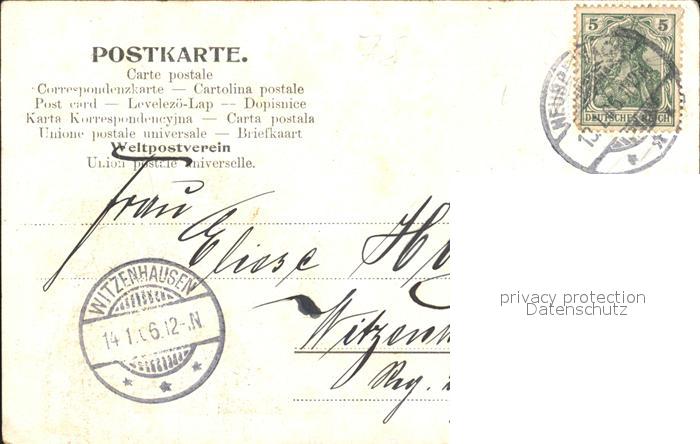 POSTKARTE.
Carte postale
Correspondenzkarte — Cartolina postale
Post card — Levelező-Lap — Dopisnice
Karta Korrespondencyjna — Carta postala
Unione postale universale — Briefkaart
Weltpostverein
Union postale universelle.
5 5
DEUTSCHES REICH
Frau
Eliese
Witzenh
Reg.
WITZENHAUSEN
14.1.06.12-.N
privacy protection
Datenschutz